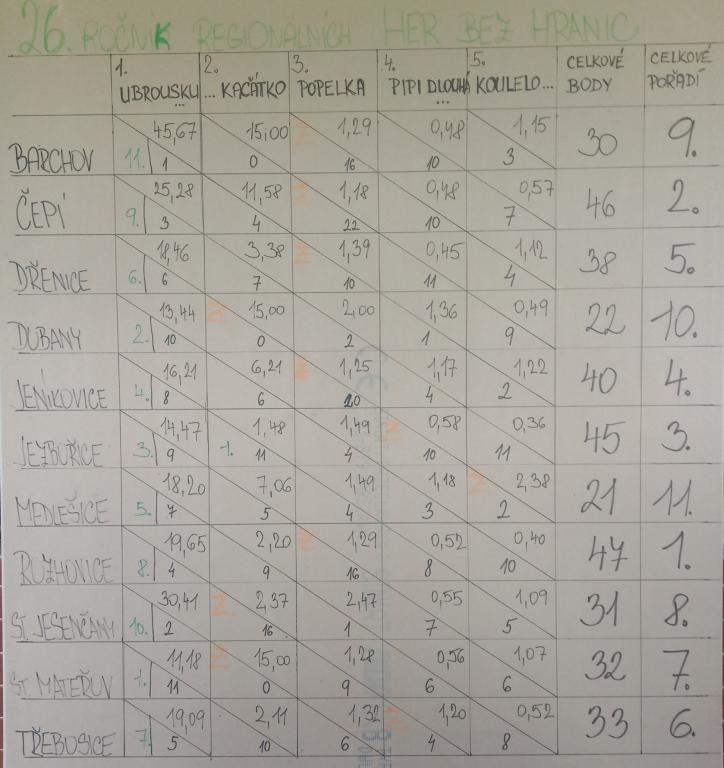 26. ROČNÍK REGIONÁLNÍCH HER BEZ HRANIC
1. UBROUSKU ... 2. ... KAČÁTKO 3. POPELKA 4. PIPI DLOUHÁ ... 5. KOULELO... CELKOVÉ BODY CELKOVÉ POŘADÍ
BARCHOV 11. 45,67 1 15,00 0 Ž 1,29 16 0,48 10 1,15 3 30 9.
ČEPÍ 9. 25,28 3 11,58 4 Ž 1,18 22 0,48 10 0,57 7 46 2.
DŘENICE 6. 18,46 6 3,38 7 Ž 1,39 10 0,45 11 1,12 4 38 5.
DUBANY 2. 13,44 10 Ž 15,00 0 2,00 2 1,36 1 0,49 9 22 10.
JENÍKOVICE 4. 16,21 8 6,21 6 Ž 1,25 20 1,17 4 1,22 2 40 4.
JEZBOŘICE 3. 14,47 9 1. 1,48 11 1,49 4 Ž 0,58 10 0,36 11 45 3.
MEDLEŠICE 5. 18,20 7 7,06 5 1,49 4 1,18 3 Ž 2,38 2 21 11.
ROZHOVICE 8. 19,65 4 2,20 9 Ž 1,29 16 0,52 8 0,40 10 47 1.
ST. JESENČANY 10. 30,41 2 Ž 2,37 16 2,47 1 0,55 7 1,09 5 31 8.
ST. MATEŘOV 1. 11,18 11 Ž 15,00 0 1,28 9 0,56 6 1,07 6 32 7.
TŘEBOSICE 7. 19,09 5 2,11 10 1,32 6 Ž 1,20 4 0,52 8 33 6.